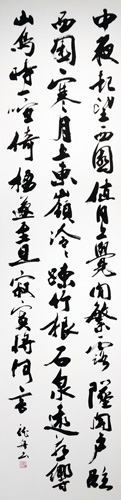 中夜起望西園值月上覺聞繁露墜開戶臨
西園寒月上東嶺泠泠疎竹根石泉遠逾響
山鳥時一喧倚楹遂至旦寂寞將何言